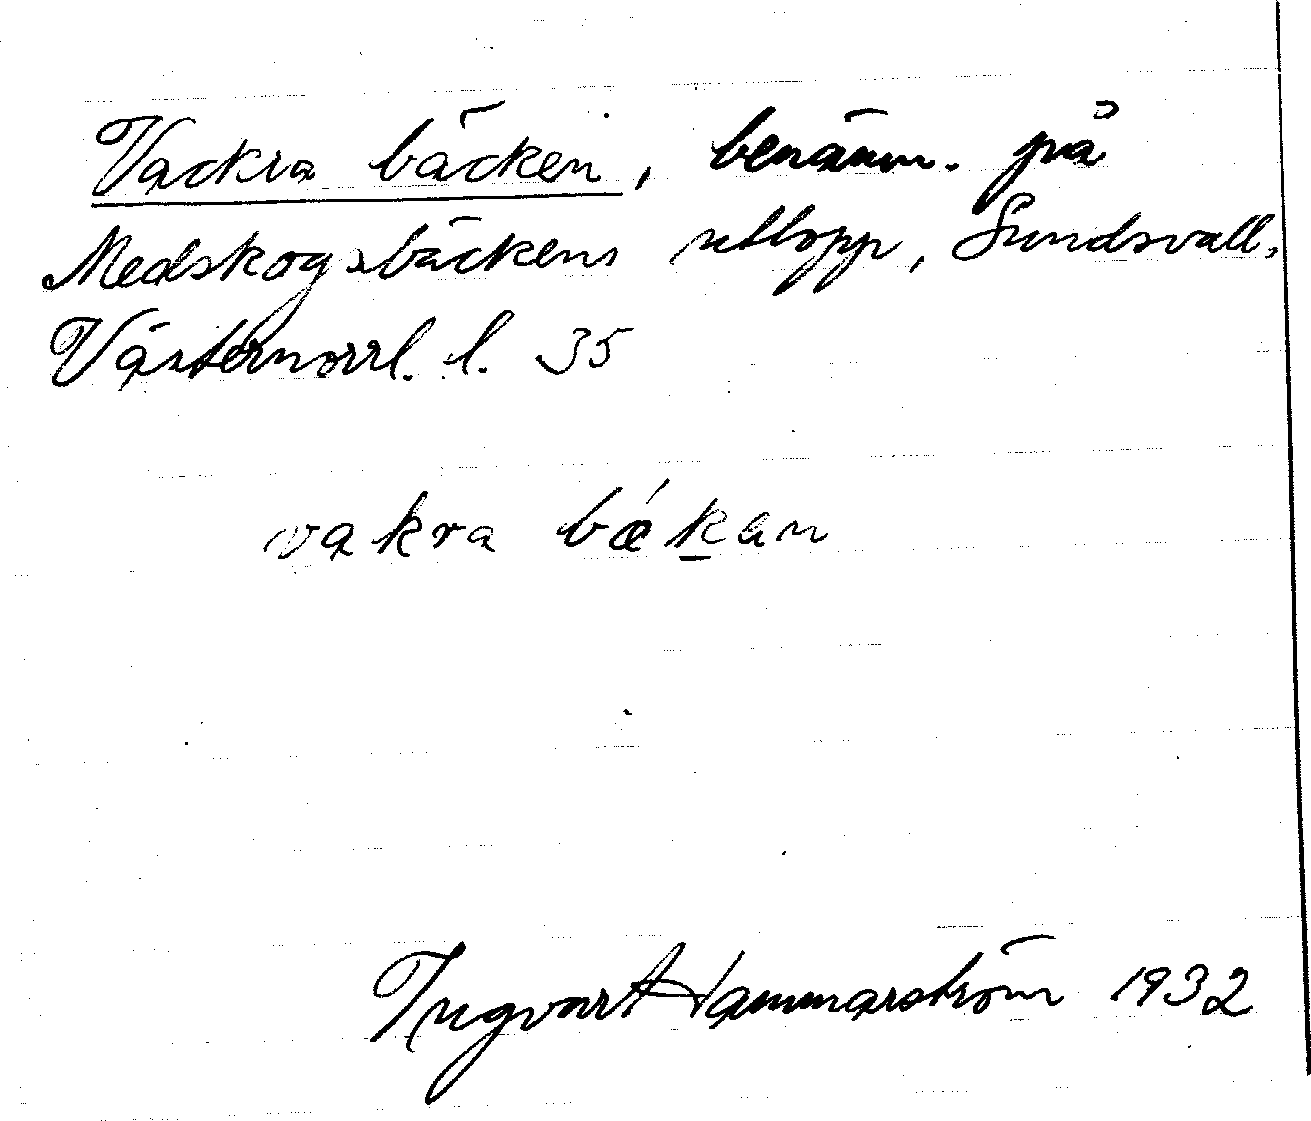 Vackra bäcken, benämn. på
Medskogsbäckens utlopp, Sundsvall,
Västernorrl. l. 35
vakra bǽk̲an
Ingvart Hammarström 1932